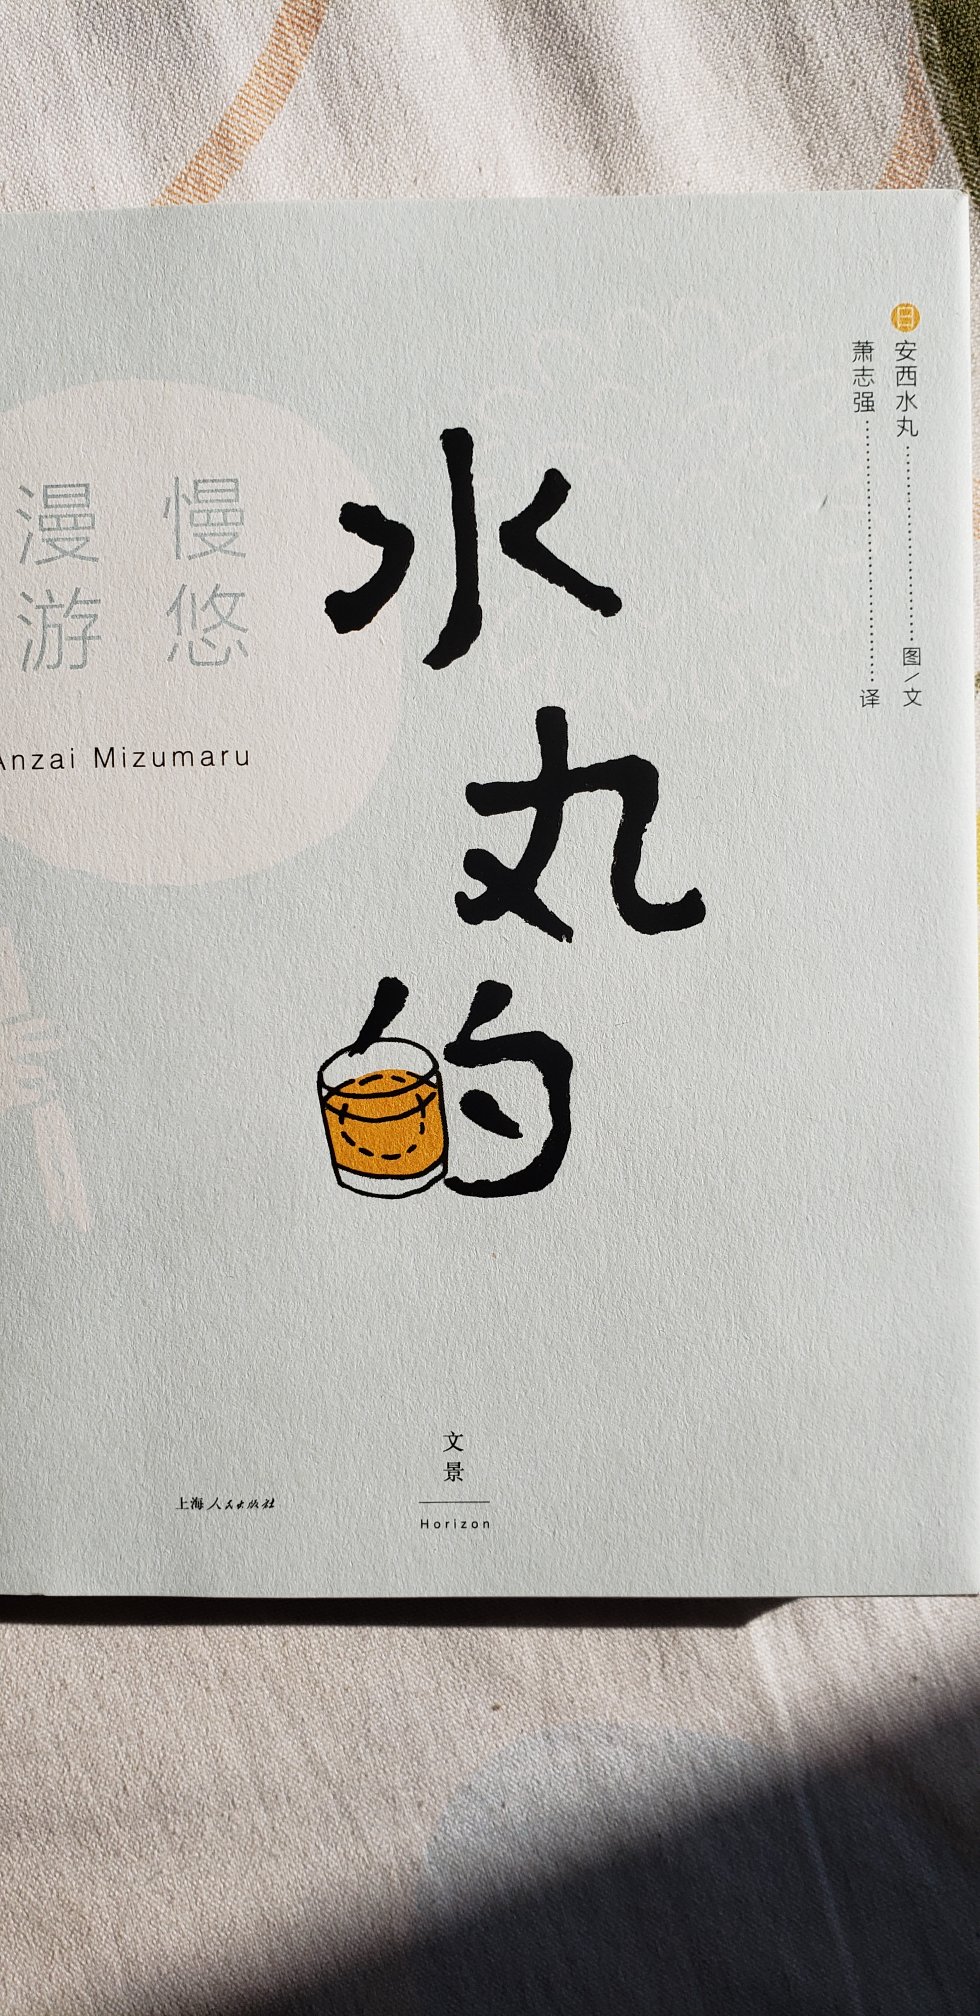 日 安西水丸 图/文
萧志强 译
水丸的
慢悠
漫游
Anzai Mizumaru
文景
Horizon
上海人民出版社